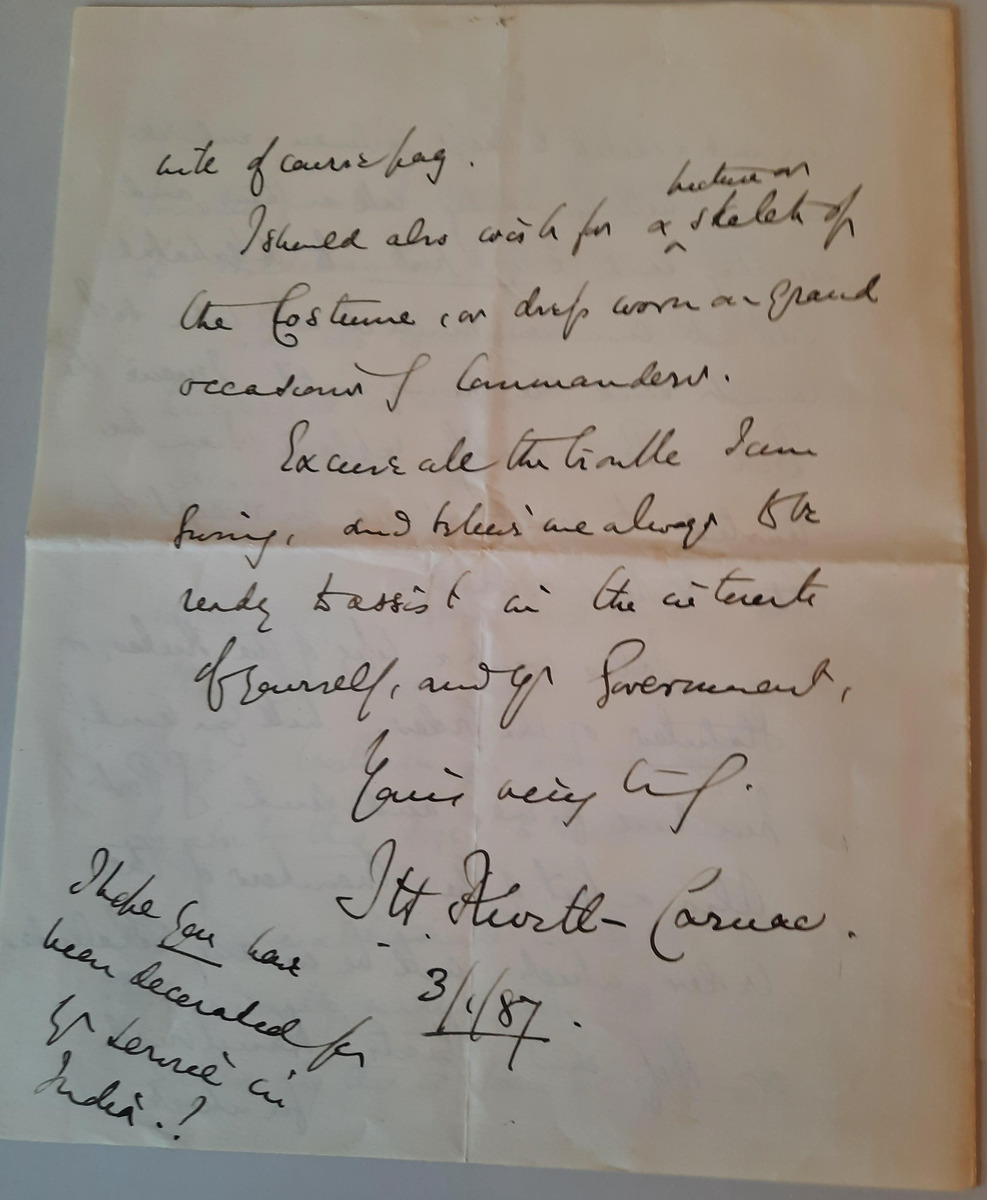 will of course pay.
I should also wish for a picture or sketch of
the Costume, or dress worn on grand
occasions of Commanders.
Excuse all the trouble I am
giving, and believe me always to be
ready to assist in the interests
of yourself, and yr Government,
Yours very truly.
J H Rivett-Carnac.
3/1/87.
I hope you have
been decorated for
yr service in
India.?